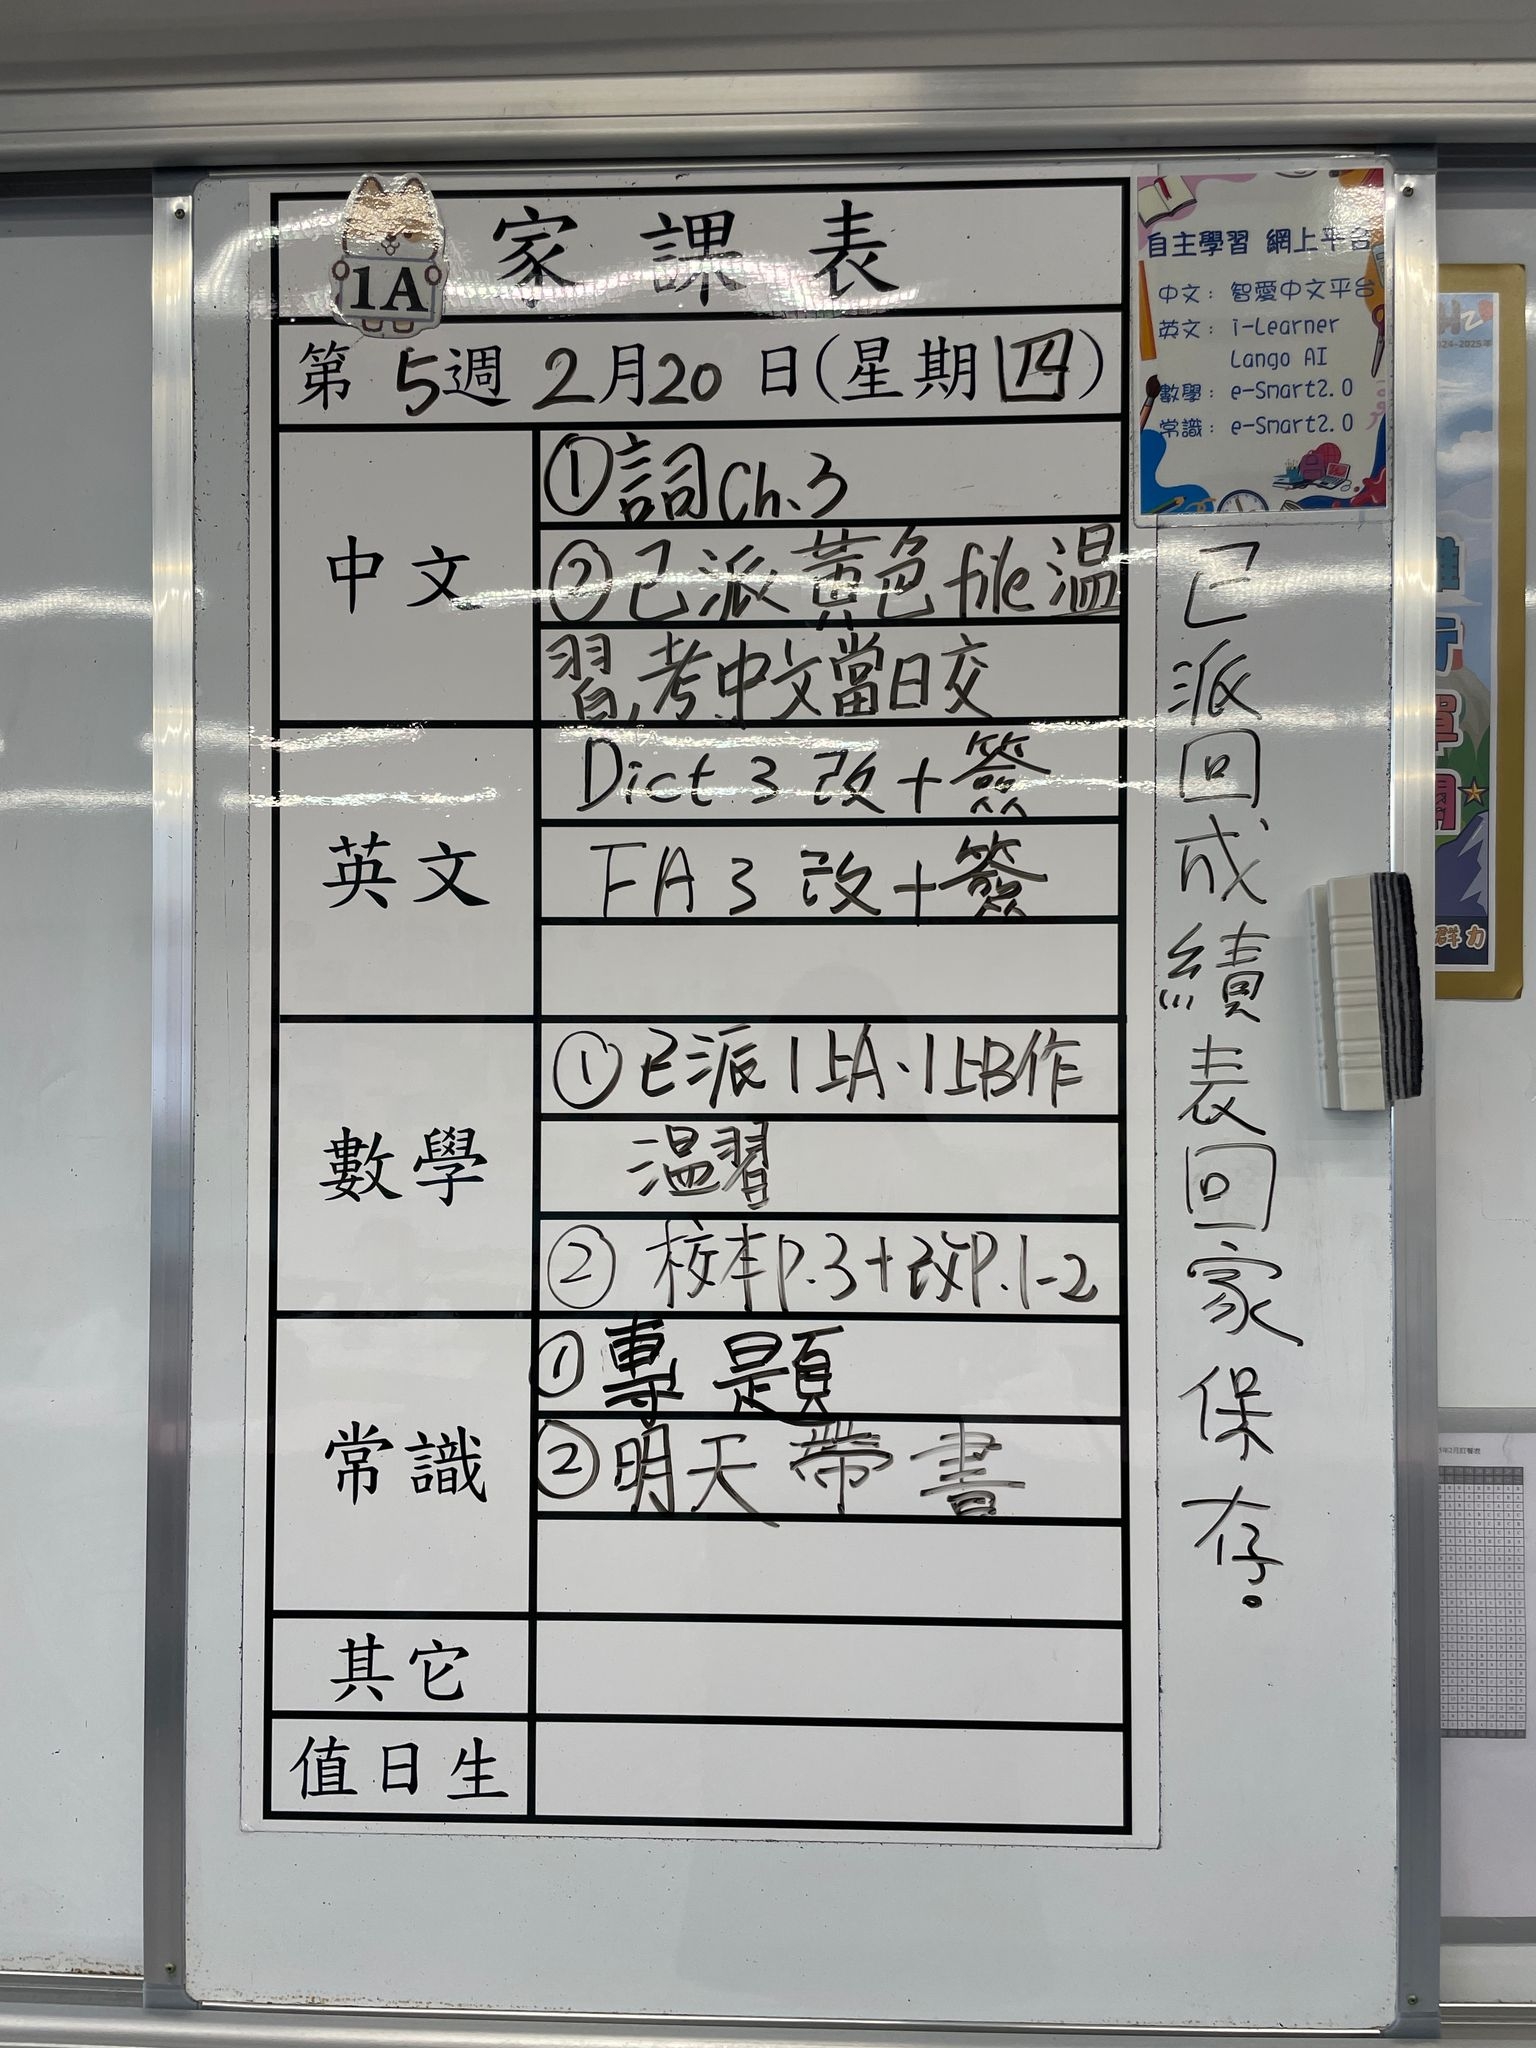 1A
家課表
第5週2月20日(星期四)
中文
①詞Ch.3
②已派黃色file溫
習,考中文當日交
英文
Dict 3 改+簽
FA 3 改+簽
數學
①已派1上A、1上B作
溫習
②校本P.3+改P.1-2
常識
①專題
②明天帶書
其它
值日生
自主學習 網上平台
中文：智愛中文平台
英文：i-Learner
Lango AI
數學：e-Smart2.0
常識：e-Smart2.0
已派回成績表回家保存。
2024-2025年
群力